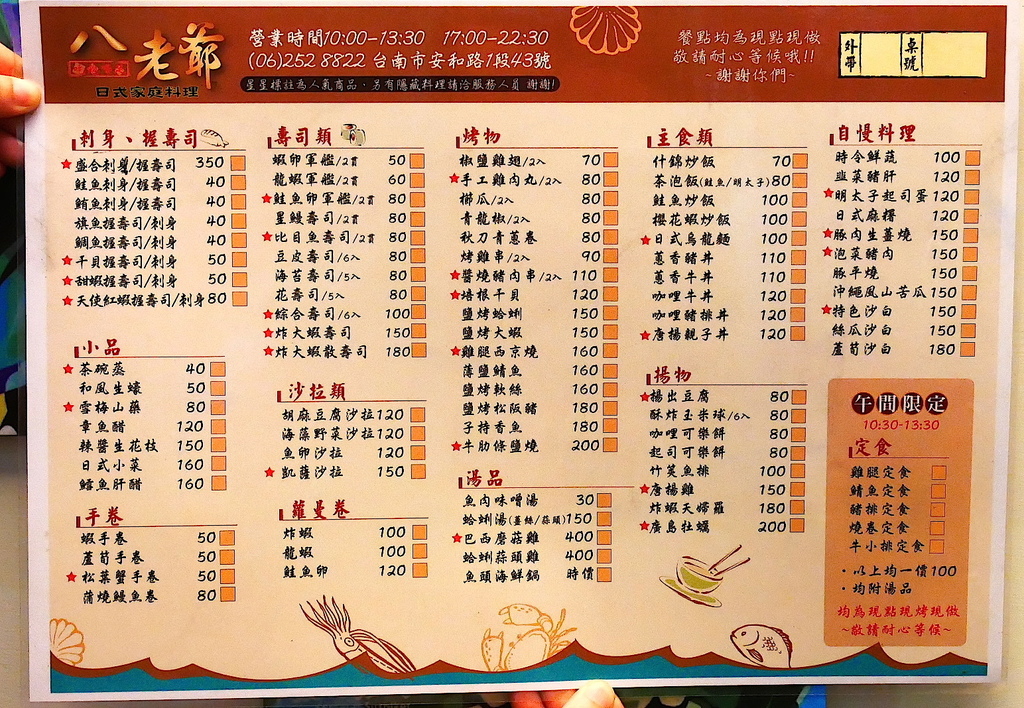 八老爺
日式家庭料理
營業時間10:00-13:30 17:00-22:30
(06)252 8822 台南市安和路1段43號
星星標註為人氣商品，另有隱藏料理請洽服務人員 謝謝!
餐點均為現點現做
敬請耐心等候哦!!
~謝謝你們~
外帶
桌號
刺身、握壽司
★盛合刺身/握壽司 350
鮭魚刺身/握壽司 40
鮪魚刺身/握壽司 40
旗魚握壽司/刺身 40
鯛魚握壽司/刺身 40
★干貝握壽司/刺身 50
★甜蝦握壽司/刺身 50
★天使紅蝦握壽司/刺身 80
小品
★茶碗蒸 40
和風生蠔 50
★雪梅山藥 80
章魚醋 120
辣醬生花枝 150
日式小菜 160
鱈魚肝醋 160
手卷
蝦手卷 50
蘆筍手卷 50
★松葉蟹手卷 50
蒲燒鰻魚卷 80
壽司類
蝦卵軍艦/2貫 50
龍蝦軍艦/2貫 60
★鮭魚卵軍艦/2貫 80
星鰻壽司/2貫 80
★比目魚壽司/2貫 80
豆皮壽司/6入 80
海苔壽司/5入 80
花壽司/5入 80
★綜合壽司/6入 100
★炸大蝦壽司 150
★炸大蝦散壽司 180
沙拉類
胡麻豆腐沙拉 120
海藻野菜沙拉 120
魚卵沙拉 120
★凱薩沙拉 150
蘿蔓卷
炸蝦 100
龍蝦 100
鮭魚卵 120
烤物
椒鹽雞翅/2入 70
★手工雞肉丸/2入 80
櫛瓜/2入 80
青龍椒/2入 80
秋刀青蔥卷 80
烤雞串/2入 90
★醬燒豬肉串/2入 110
★培根干貝 120
鹽烤蛤蜊 150
鹽烤大蝦 150
★雞腿西京燒 160
薄鹽鯖魚 160
鹽烤軟絲 160
鹽烤松阪豬 180
子持香魚 180
★牛肋條鹽燒 200
湯品
魚肉味噌湯 30
蛤蜊湯(薑絲/蒜頭) 150
★巴西蘑菇雞 400
蛤蜊蒜頭雞 400
魚頭海鮮鍋 時價
主食類
什錦炒飯 70
茶泡飯(鮭魚/明太子) 80
鮭魚炒飯 100
櫻花蝦炒飯 100
★日式烏龍麵 100
蔥香豬丼 110
蔥香牛丼 110
咖哩牛丼 120
咖哩豬排丼 120
★唐揚親子丼 120
揚物
★揚出豆腐 80
酥炸玉米球/6入 80
咖哩可樂餅 80
起司可樂餅 80
竹筴魚排 100
★唐揚雞 150
炸蝦天婦羅 180
★廣島牡蠣 200
自慢料理
時令鮮蔬 100
韭菜豬肝 120
★明太子起司蛋 120
日式麻糬 120
★豚肉生薑燒 150
★泡菜豬肉 150
豚平燒 150
沖繩風山苦瓜 150
★特色沙白 150
絲瓜沙白 150
蘆筍沙白 180
午間限定
10:30-13:30
定食
雞腿定食
鯖魚定食
豬排定食
燒卷定食
牛小排定食
・以上均一價100
・均附湯品
均為現點現烤現做
~敬請耐心等候~